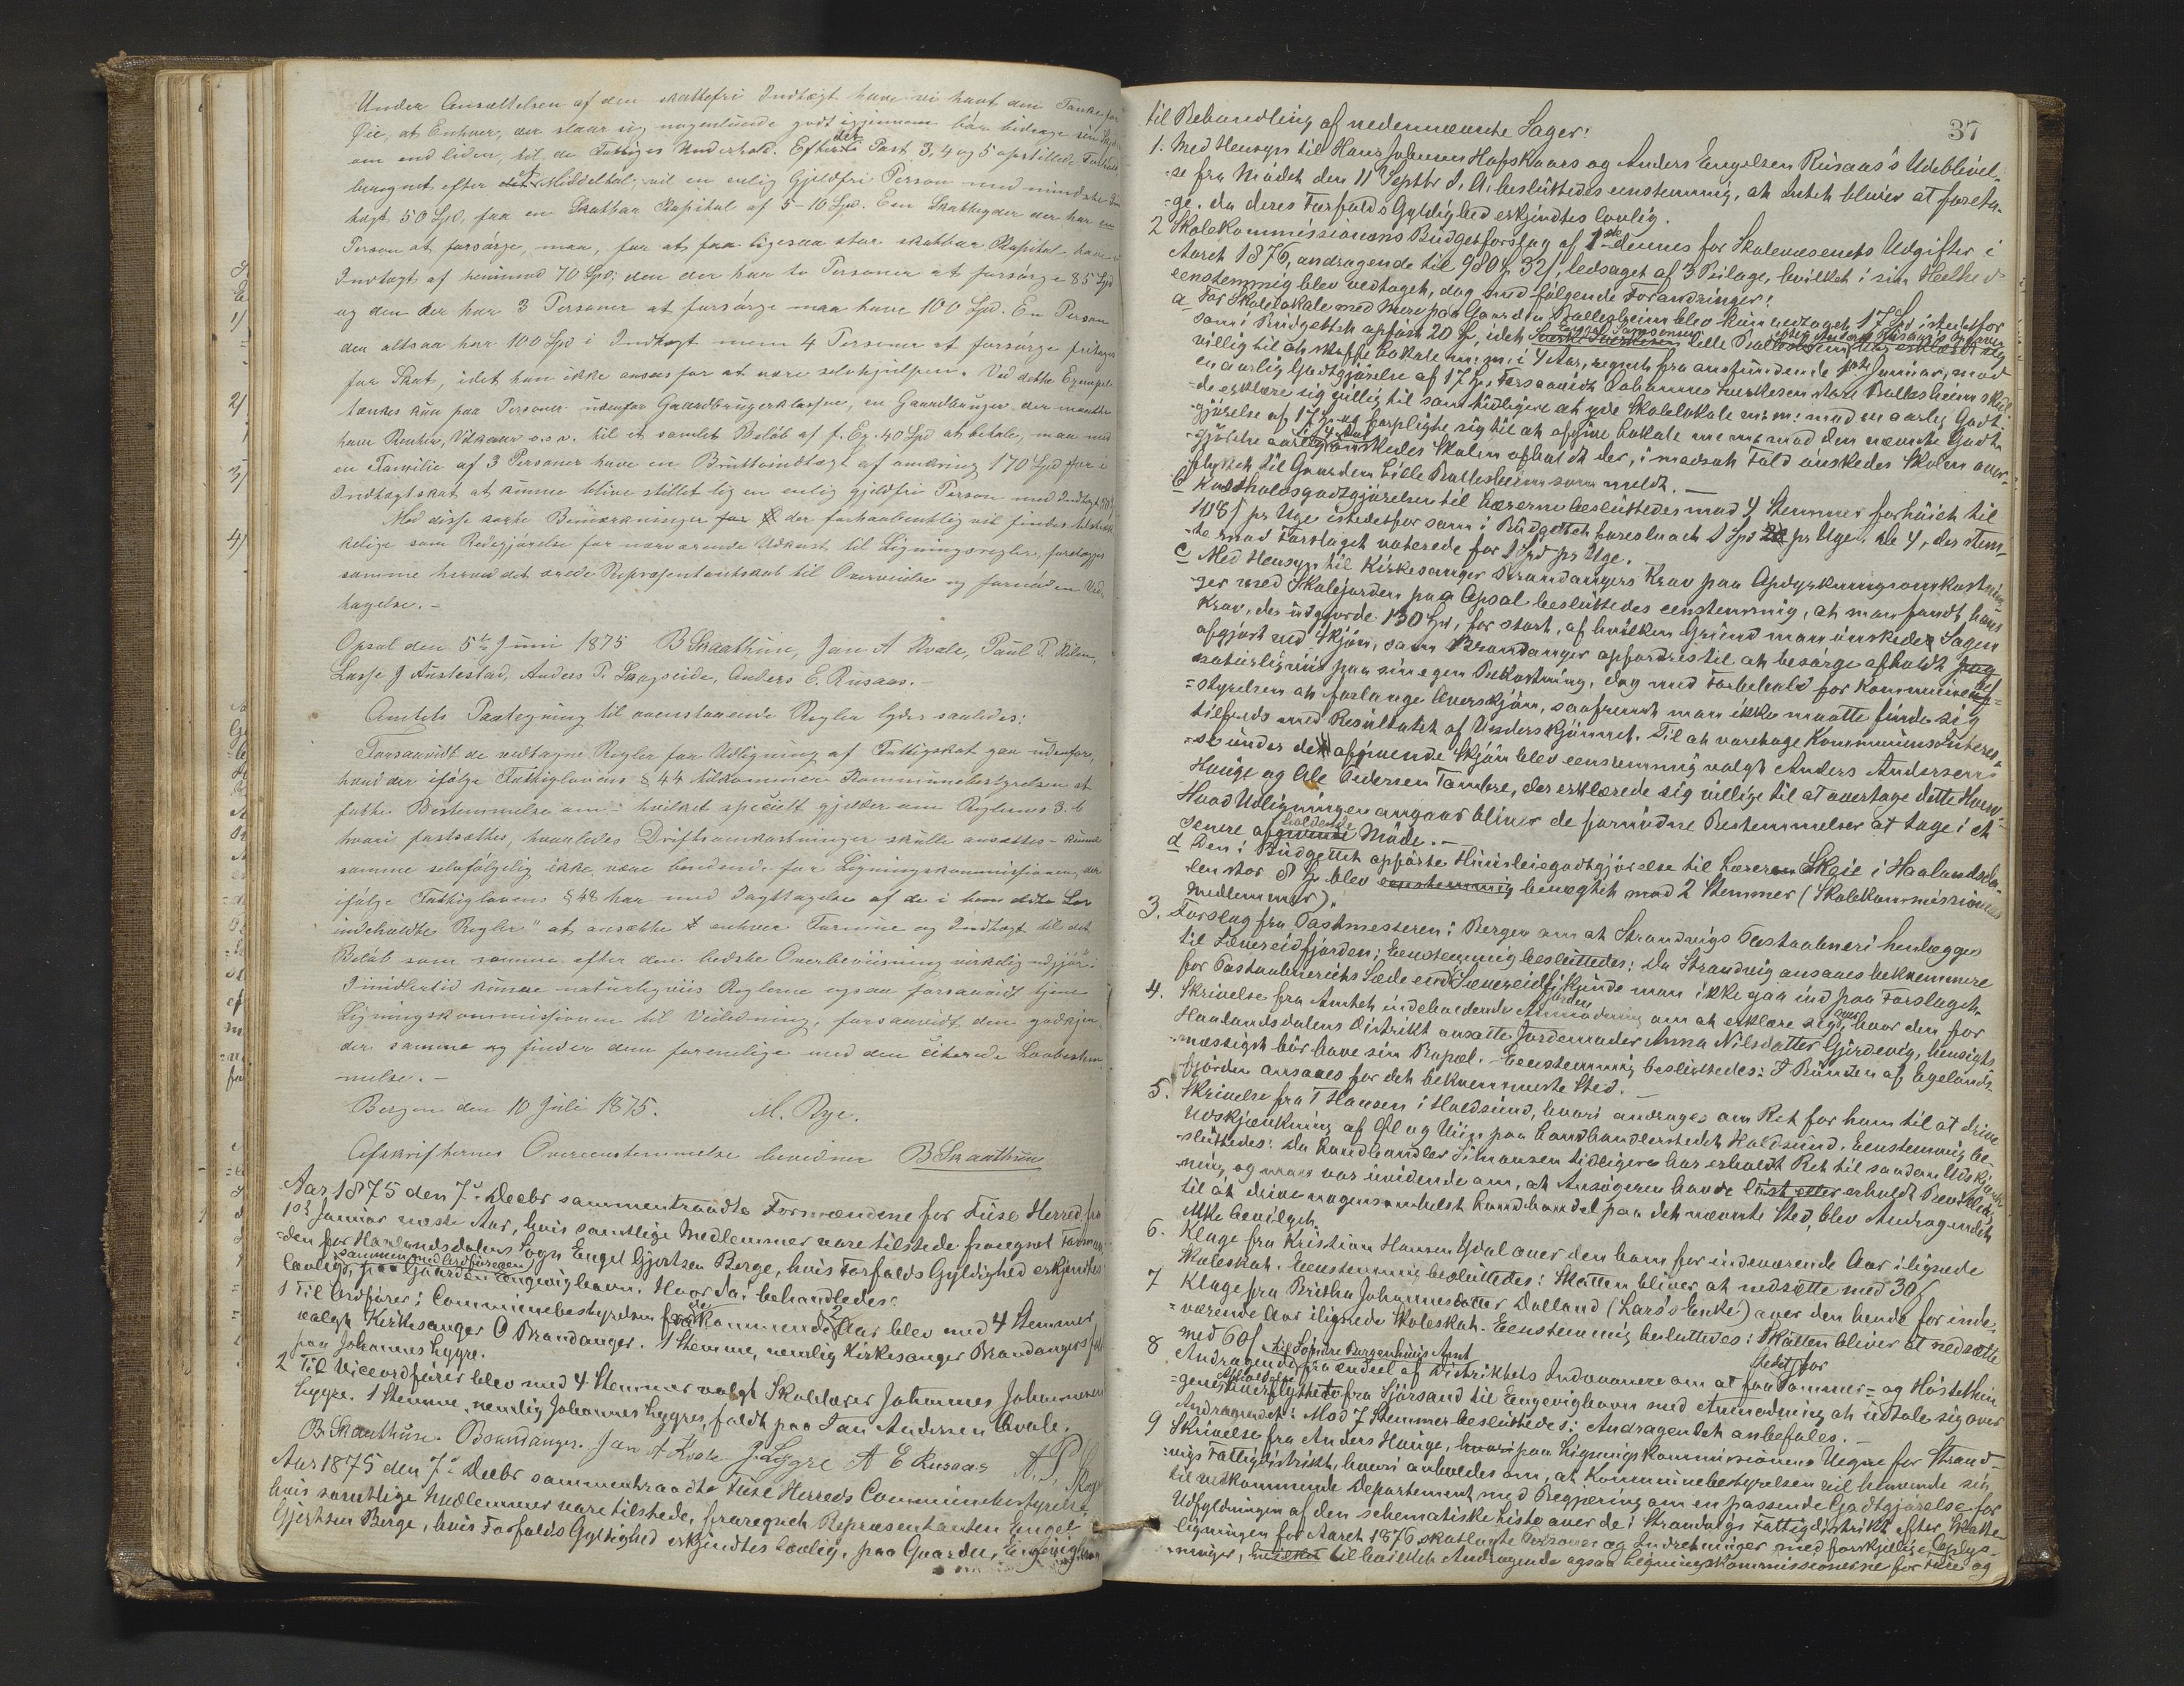 Under Ansættelsen af den skattefri Indtægt have vi havt den Tanke for
Øie, at Enhver, der slaar sig nogenlunde godt igjennem bør bidrage sin Skjærv
om end liden, til de Fattiges Underhold. Efter de i Post 3, 4 og 5 opstillede Forhold
beregnet efter et Middeltal, vil en enlig Gjeldfri Person med mindste Ind
tægt, 50 Spd, faa en Skatbar Kapital af 5-10 Spd. Een Skatteyder der har en
Person at forsørge, maa, for at faa ligesaa stor skatbar Kapital, have en
Indtægt af henimod 70 Spd; den der har to Personer at forsørge 85 Spd
og den der har 3 Personer at forsørge maa have 100 Spd. En Person
der altsaa har 100 Spd i Indtægt men 4 Personer at forsørge fritages
for Skat, idet han ikke ansees for at være selvhjulpen. Ved dette Exempel
tænkes kun paa Personer udenfor Gaardbrugerklassen, en Gaardbruger der maatte
have Renter, Vilkaar o.s.v. til et samlet Beløb af f. Ex. 40 Spd at betale, maa med
en Familie af 3 Personer have en Bruttoindtægt af omkring 170 Spd for i
Indtægtskat at kunne blive stillet lig en enlig gjeldfri Person med Indtægt 50
Med disse korte Bemærkninger for der forhaabentlig vil findes tilstræk
kelige som Redegjørelse for nærværende Udkast til Ligningsregler, forelægges
samme herved det ærede Repræsentantskab til Overveielse og fornøden Ved-
tagelse. -
Opsal den 5te Juni 1875 B Skaathun, Jan A Kvale, Paul P. Kilen,
Lasse J Austestad, Anders P. Skogseide, Anders E. Rusaas. -
Amtets Paategning til ovenstaaende Regler lyder saaledes:
Forsaavidt de vedtagne Regler for Udligning af Fattigskat gaa udenfor,
hvad der ifølge Fattiglovens § 44 tilkommer Kommunebestyrelsen at
fatte Bestemmelse om - hvilket specielt gjelder om Reglernes 3. b
hvori fastsættes, hvorledes Driftsomkostninger skulle ansættes - kunne
samme selvfølgelig ikke være bindende for Ligningskommissionen, der
ifølge Fattiglovens § 48 har med Iagttagelse af de i bem eldte Lov
indeholdte Regler" at ansætte enhver Formue og Indtægt til det
Beløb som samme efter den bedste Overbeviisning virkelig udgjør.
Imidlertid kunne naturligviis Reglerne ogsaa forsaavidt tjene
Ligningskommissionen til Veiledning, forsaavidt den godkjen
der samme og finder dem forenelige med den citerede Lovbestem
melse. -
Bergen den 10 Juli 1875. M. Rye.
Afskrifternes Overeensstemmelse bevidner B Skaathun
Aar 1875 den 7de Decbr sammentraadte Formændene for Fuse Herred fra
1ste Januar næste Aar, hvis samtlige Medlemmer vare tilstede fraregnet Forman-
den for Haalandsdalens Sogn Engel Gjertsen Berge, hvis Forfalds Gyldighed erkjendtes
lovlig, sammen med Ordføreren paa Gaarden Engevighavn. Hvor da behandledes:
1 Til Ordfører i Communebestyrelsen for de kommende 2 Aar blev med 4 Stemmer
valgt Kirkesanger O Brandanger. 1 Stemme, nemlig Kirkesanger Brandangers faldt
paa Johannes Lygre.
2 Til Viceordfører blev med 4 Stemmer valgt Skolelærer Johannes Johannesen
Lygre. 1 Stemme, nemlig Johannes Lygres, faldt paa Jan Andersen Qvale.
B. Skaathun. Brandanger. Jan A Kvale J. Lygre A E Rusaas A. P. Skog
Aar 1875 den 7de Decbr sammentraadte Fuse Herreds Communebestyrelse
hvis samtlige Medlemmer vare tilstede, fraregnet Repræsentanten Engel
Gjertsen Berge, hvis Forfalds Gyldighed erkjendtes lovlig, paa Gaarden Engevighavn
37
til Behandling af nedennævnte Sager:
1. Med Hensyn til Hans Johannes Hafskaars og Anders Engelsen Rusaas's Udeblivel-
-se fra Mødet den 11 Septbr d. A. besluttedes eenstemmig, at Intet bliver at foreta-
-ge, da deres Forfalds Gyldighed erkjendtes lovlig.
2 Skolekommissionens Budgetforslag af 1ste dennes for Skolevæsenets Udgifter i
Aaret 1876, andragende til 980 Sp 32 s, ledsaget af 3 Bilage, hvilket i sin Helhed
eenstemmig blev vedtaget, dog med følgende Forandringer:
a For Skolelokale med Mere paa Gaarden Ballesheim blev kun vedtaget 17 Spd istedetfor
som i Budgettet opført 20 Sp, idet Sverke Sverkesen Engel Samsonsen Lille Ballesheim erklærede sig
villig til at skaffe Lokale m. m. i 4 Aar, regnet fra anstundende 1ste Januar, mod
en aarlig Godtgjørelse af 17 Sp. Forsaavidt Johannes Sverkesen Store Ballesheim skul-
-de erklære sig villig til som tidligere at yde Skolelokale m. m. mod en aarlig Godt-
gjørelse af 17 Sp. og forpligte sig til at afgive Lokale m. m. mod den nævnte Godt-
-gjørelse aarlig i 4 Aar ønskedes Skolen afholdt der, i modsat Fald ønskedes Skolen over-
flyttet til Gaarden Lille Ballesheim som meldt. -
b Kostholdsgodtgjørelsen til Lærerne besluttedes med 7 Stemmer forhøiet til
108 s pr Uge istedetfor som i Budgettet foreslaaet 1 Spd pr Uge. De 4, der stem-
-te mod Forslaget voterede for 1 Spd pr Uge.
c Med Hensyn til Kirkesanger Brandangers Krav paa Opdyrkningsomkostnin-
ger med Skolejorden paa Opsal besluttedes eenstemmig, at man fandt hans
Krav, der udgjorde 130 Spd, for stort, af hvilken Grund man ønskede Sagen
afgjort ved Skjøn, som Brandanger opfordres til at besørge afholdt
naturligviis paa sin egen Bekostning, dog med Forbehold for Kommunebe-
=styrelsen at forlange Overskjøn, saafremt man ikke maatte finde sig
tilfreds med Resultatet af Underskjønnet. Til at varetage Kommunens Interes-
=se under det afgivende Skjøn blev eenstemmig valgt Anders Andersen
Hauge og Ole Pedersen Tombre, der erklærede sig villige til at overtage dette Hverv.
Hvad Udligningen angaar bliver de fornødne Bestemmelser at tage i et
senere afholdende Møde. -
d Den i Budgettet opførte Huusleiegodtgjørelse til Læreren Skeie i Haalandsda-
len stor 8 Sp blev eenstemmig benægtet mod 2 Stemmer (Skolekommissionens
Medlemmer).
3. Forslag fra Postmesteren i Bergen om at Strandvigs Postaabneri henlægges
til Sævereidfjorden; Eenstemmig besluttedes: Da Strandvig ansaaes bekvemmere
for Postaabneriets Sæde end Sævereidfjorden, kunde man ikke gaa ind paa Forslaget.
4. Skrivelse fra Amtet indeholdende Anmodning om at erklære sig over, hvor den for
Haalandsdalens Distrikt ansatte Jordemoder Anna Nilsdatter Gjerdevig, hensigts-
-mæssigst bør have sin Bopæl. - Eenstemmig besluttedes: I Bunden af Egelands-
fjorden ansaaes for det bekvemmeste Sted. -
5. Skrivelse fra T Hansen i Holdsund, hvori andrages om Ret for ham til at drive
Udskjænkning af Øl og Viin paa Landhandlerstedet Holdsund. Eenstemmig be-
-sluttedes: Da Landhandler Simonsen tidligere har erholdt Ret til saadan Udskjænk-
ning, og man var uvidende om, at Ansøgeren havde løst eller erholdt Bevilling
til at drive nogensomhelst Landhandel paa det nævnte Sted, blev Andragendet
ikke bevilget.
6. Klage fra Kristian Hansen Ydal over den ham for indeværende Aar ilignede
Skoleskat. Eenstemmig besluttedes: Skatten bliver at nedsætte med 30 s
7 Klage fra Britha Johannesdatter Dalland (Lars's Enke) over den hende for inde-
=værende Aar ilignede Skoleskat. Eenstemmig besluttedes: Skatten bliver at nedsætte
med 60 s
8 Andragende til Søndre Bergenhuus Amt fra endeel af Distriktets Indvaanere om at faa Stedet for Sommer- og Høstethin-
-genes Afholdelse overflyttet fra Sjørsand til Engevighavn med Anmodning at udtale sig over
Andragendet: Mod 7 Stemmer besluttedes: Andragendet anbefales. -
9 Skrivelse fra Anders Hauge, hvori paa Ligningskommissionens Vegne for Strand-
-vigs Fattigdistrikt, hvori anholdes om, at Kommunebestyrelsen vil henvende sig
til vedkommende Departement med Begjæring om en passende Godtgjørelse for
Udfyldningen af den schematiske Liste over de i Strandvigs Fattigdistrikt efter Skatte-
ligningen for Aaret 1876 skatlagte Personer og Indretninger med forskjellige Oplys-
-ninger, hvilket til hvilket Andragende ogsaa Ligningskommissionerne for Fuse og